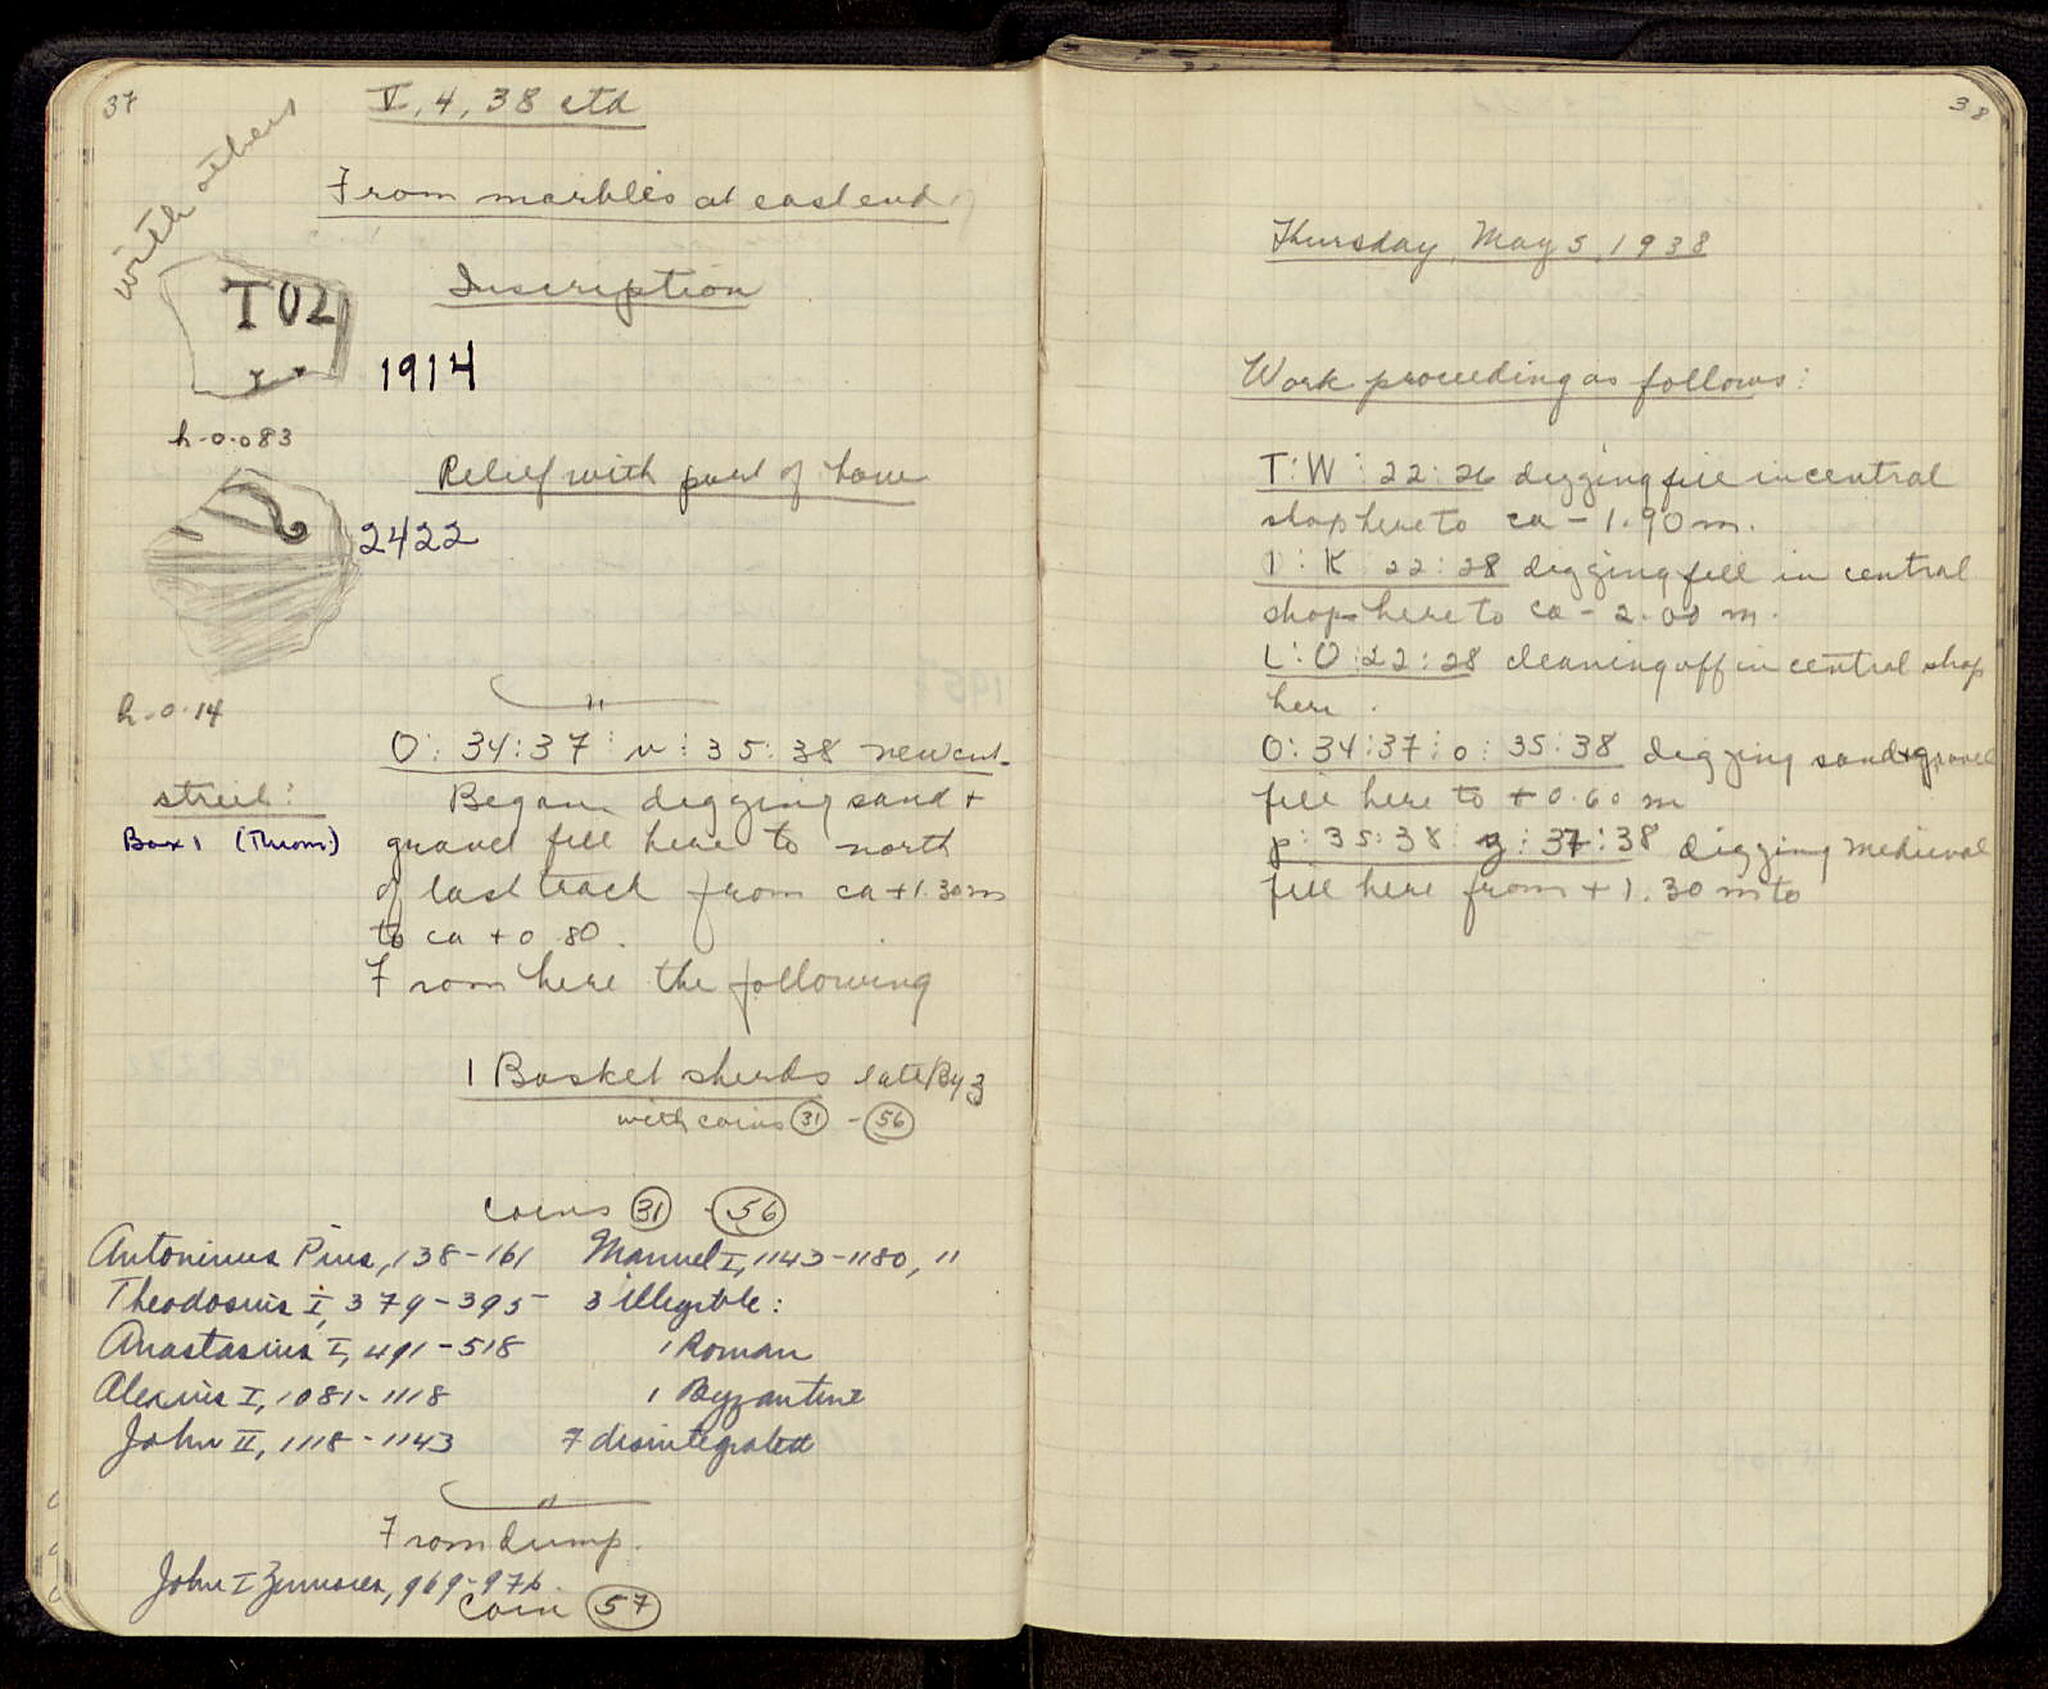 37
V, 4, 38 ctd
with others
From marbles at east end.
T02
Inscription
1914
h-0.083
Relief with part of
2422
h-0.14
O: 34:37: u: 35:38 new cut
street:
Began digging sand +
Box 1 (Throm.)
gravel fill here to north
of last trach from ca +1.30 m
to ca +0.80.
From here the following
1 Basket sherds late Byz
with coins 31 - 56
coins 31 - 56
Antoninus Pius, 138-161
Manuel I, 1143-1180, 11
Theodosius I, 379-395
3 illegible:
Anastasius I, 491-518
1 Roman
Alexius I, 1081-1118
1 Byzantine
John II, 1118-1143
7 disintegrated
From dump.
John I Zimisces, 969-976.
coin 57
38
Thursday, May 5, 1938
Work proceeding as follows:
T:W: 22:26 digging fill in central
shop here to ca - 1.90 m.
I: K 22:28 digging fill in central
shop here to ca - 2.00 m.
L:O:22:28 cleaning off in central shop
here.
O: 34:37: o: 35:38 digging sand + gravel
fill here to +0.60 m
p: 35:38: z: 37:38 digging medieval
fill here from +1.30 m to